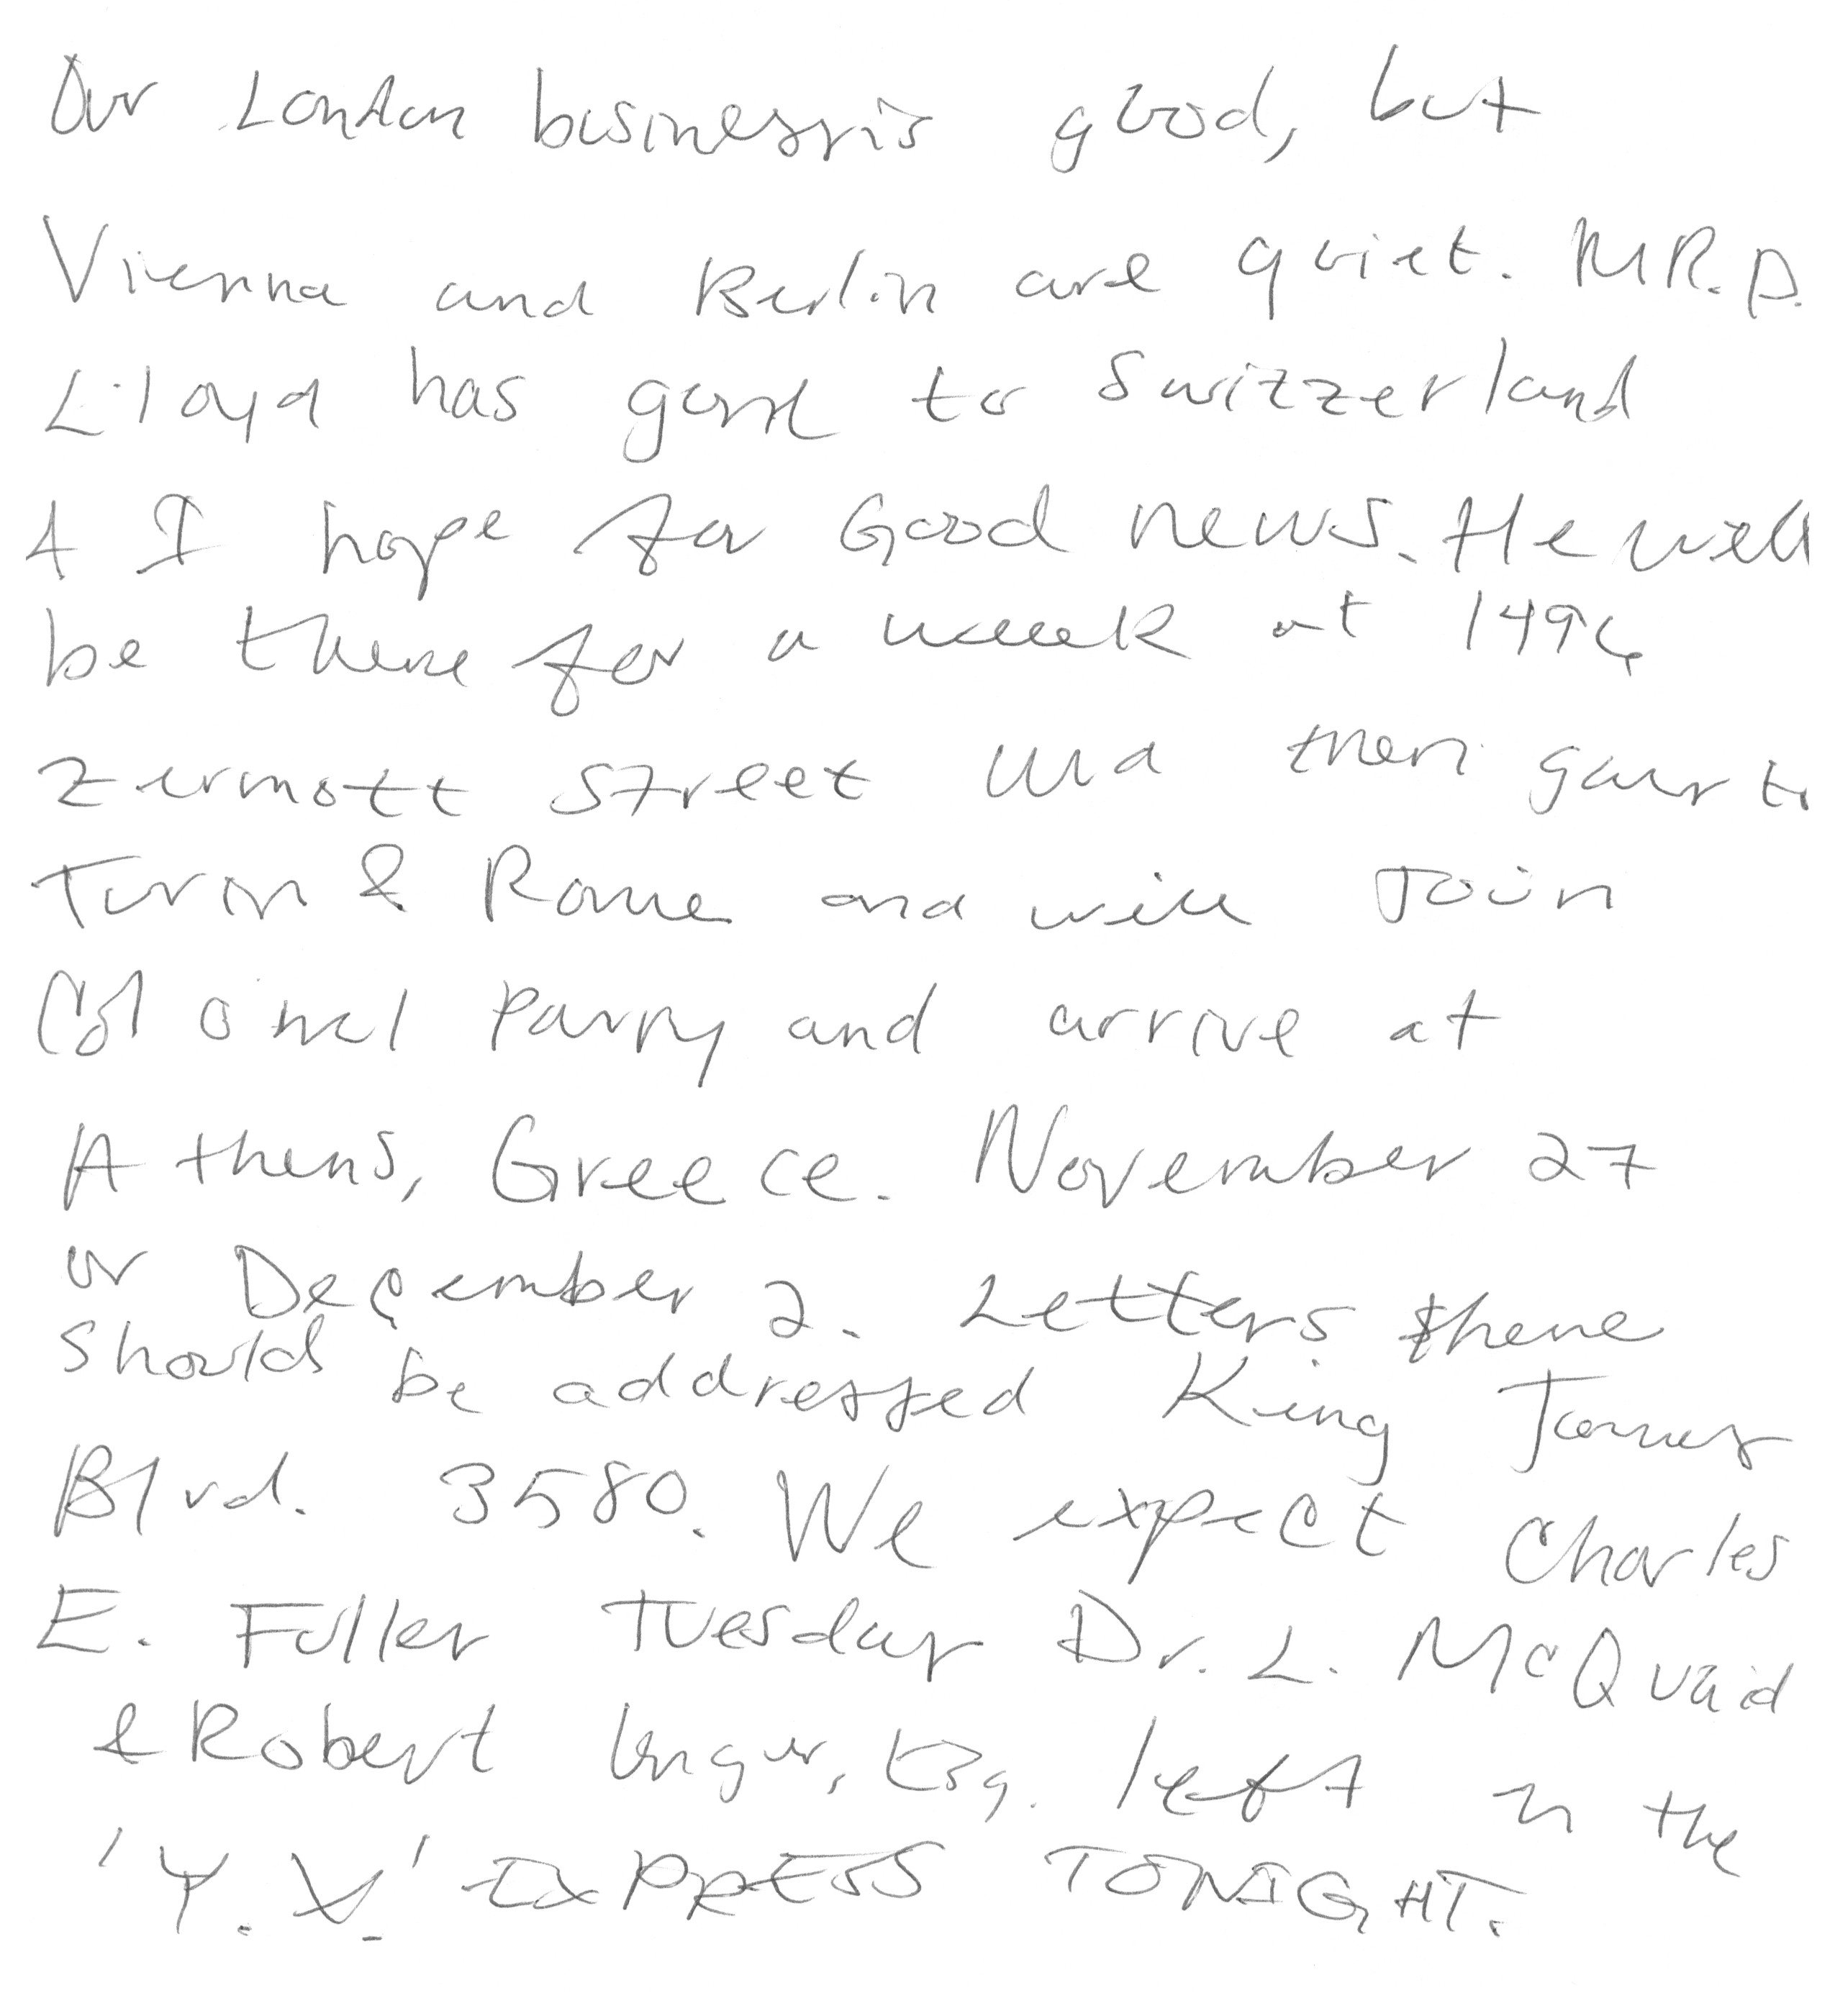 Our London business is good, but
Vienna and Berlin are quiet. MR. D.
Lloyd has gone to Switzzerland
& I hope for Good news. He will
be there for a week at 1496
Zermott Street and then goes to
Turin & Rome and will Join
Colonel Parry and arrive at
Athens, Greece. November 27
or December 2. Letters there
should be addressed King James
Blvd. 3580. We expect Charles
E. Fuller Tuesday Dr. L. McQuaid
& Robert Unger, Esq. left on the
'Y. V.' EXPRESS TONIGHT.